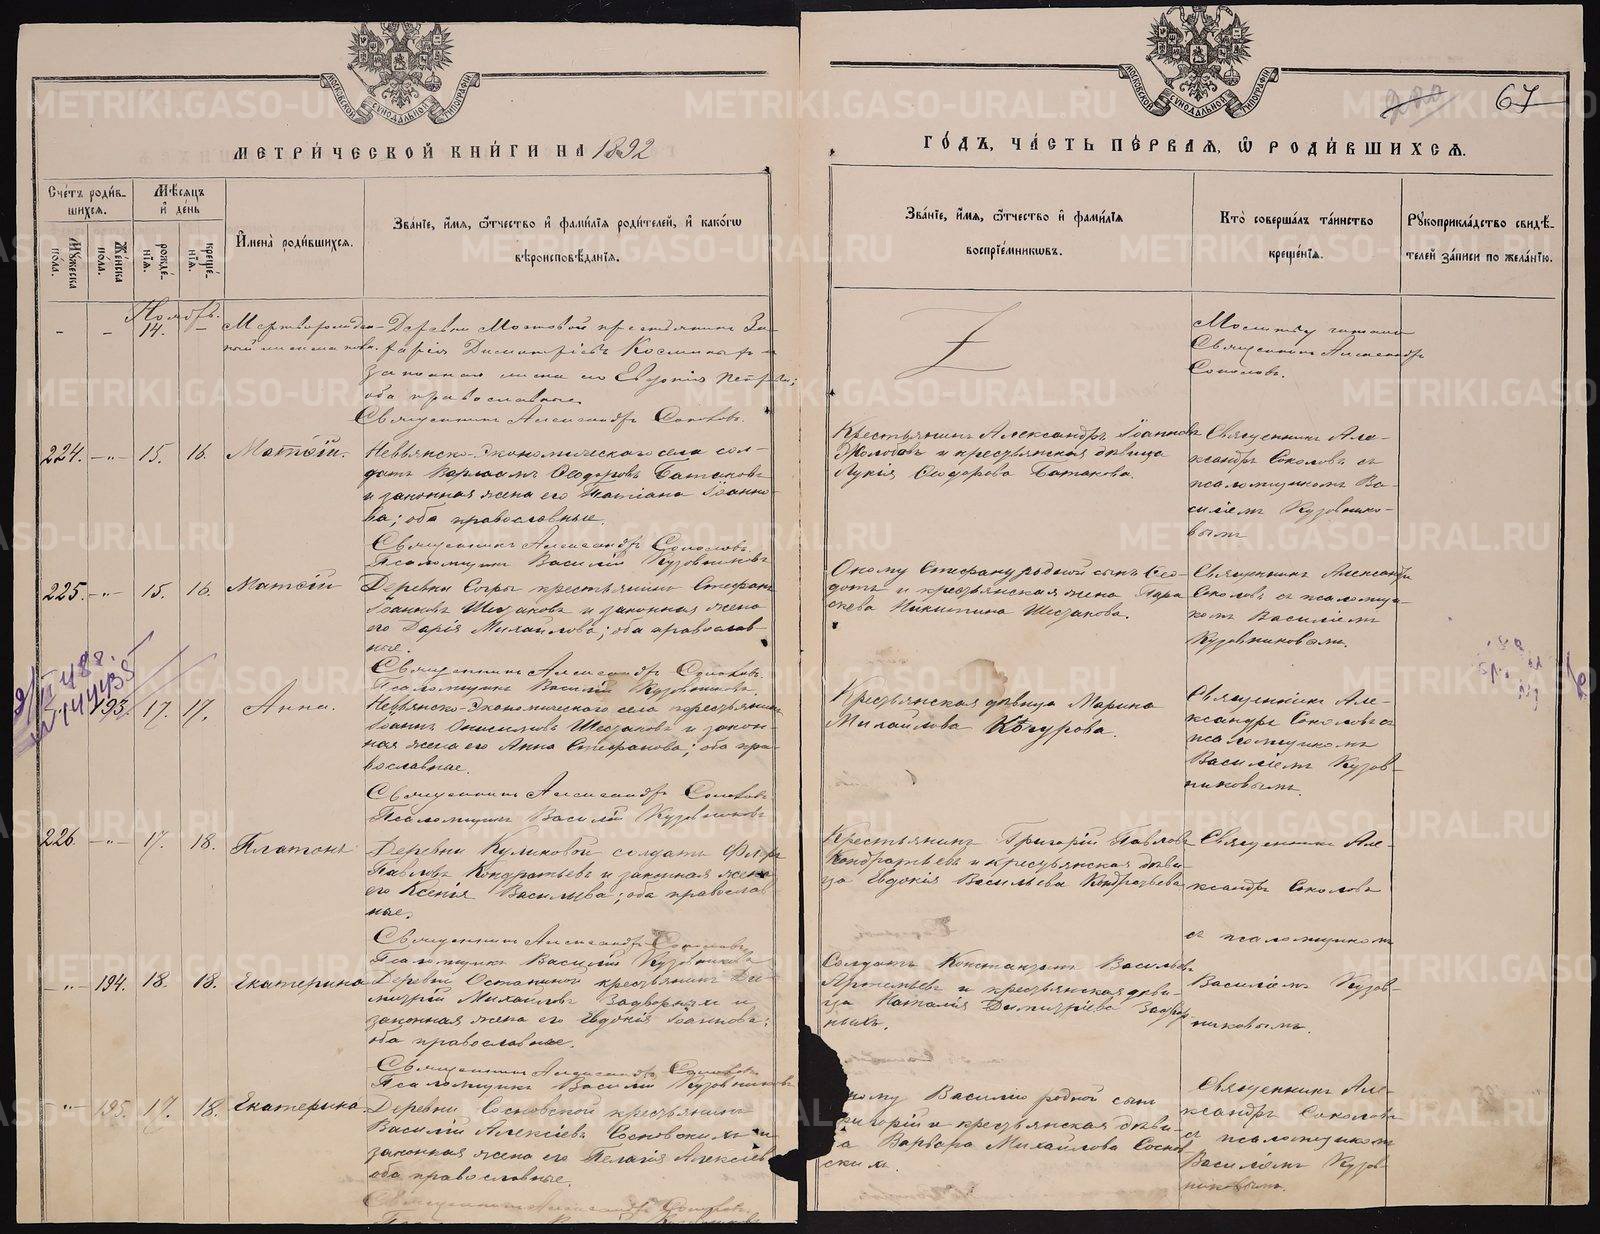 МЕТРИ́ЧЕСКОЙ КНИ́ГИ НА 1892
Сче́тъ роди́в-
шихсѧ.
Мѣ́сѧцъ
и҆ де́нь
Мꙋ́жеска
по́ла.
Же́нска
по́ла.
рожде́-
нїѧ.
креще́-
нїѧ.
И҆мена̀ роди́вшихсѧ.
Зва́нїе, и҆́мѧ, ѻ҆́тчество и҆ фами́лїѧ роди́телей, и҆ како́гѡ
вѣроисповѣ́данїѧ.
Ноябрь.
- - 14. -
Мертворожден-
Деревни Мостовой крестьянинъ За-
харія Димитріевъ Косминыхъ и
законная жена его Евдокія Петрова;
оба православные.
Священникъ Александръ Соколовъ.
224. -"- 15. 16. Матѳій.
Невьянско-Экономическаго села сол-
датъ Варлаамъ Ѳедоровъ Батаковъ
и законная жена его Татіана Іоанно-
ва; оба православные.
Священникъ Александръ Соколовъ.
Псаломщикъ Василій Кузовниковъ
225. -"- 15. 16. Матѳій
Деревни Согры крестьянинъ Стефанъ
Іоанновъ Шестаковъ и законная жена
его Дарія Михайлова; оба православ-
ные.
Священникъ Александръ Соколовъ.
Псаломщикъ Василій Кузовниковъ.
193. 17. 17. Анна.
Невьянско-Экономическаго села крестьянинъ
Іоаннъ Онисимовъ Шестаковъ и закон-
ная жена его Анна Стефанова; оба пра-
вославные.
Священникъ Александръ Соколовъ
Псаломщикъ Василій Кузовниковъ
226. -"- 17. 18. Платонъ
Деревни Куликовой солдатъ Флоръ
Павловъ Кондратьевъ и законная жена
его Ксенія Васильева; оба православ-
ные.
Священникъ Александръ Соколовъ
Псаломщикъ Василій Кузовниковъ
-"- 194. 18. 18. Екатерина
Деревни Останиной крестьянинъ Ди-
митрій Михаиловъ Задворныхъ и
законная жена его Евдокія Іоаннова;
оба православные.
Священникъ Александръ Соколовъ
Псаломщикъ Василій Кузовниковъ
-"- 195. 17. 18. Екатерина
Деревни Сосновской крестьянинъ
Василій Алексіевъ Сосновскихъ и
законная жена его Пелагія Алексіев
оба православные.
Священникъ Александръ Соколовъ
67
ГО́ДЪ, ЧА́СТЬ ПЕ́РВАѦ, Ѡ҆ РОДИ́ВШИХСѦ.
Зва́нїе, и҆́мѧ, ѻ҆́тчество и҆ фами́лїѧ
воспрїе́мникѡвъ.
Кто̀ соверша́лъ та́инство
креще́нїѧ.
Рꙋкоприкла́дство свидѣ́-
телей за́писи по жела́нїю.
Молитву читалъ
Священникъ Александръ
Соколовъ.
Крестьянинъ Александръ Іоанновъ
Жолобовъ и крестьянская дѣвица
Лукія Ѳедорова Батакова.
Священникъ Але-
ксандръ Соколовъ съ
псаломщикомъ Ва-
силіемъ Кузовнико-
вымъ
Оному Стефану родной сынъ Ѳео-
дотъ и крестьянская жена Пара
скева Никитина Шестакова.
Священникъ Александръ
Соколовъ съ псаломщи-
комъ Василіемъ
Кузовниковымъ.
Крестьянская дѣвица Марина
Михайлова Кочурова.
Священникъ Але-
ксандръ Соколовъ съ
псаломщикомъ
Василіемъ Кузов-
никовымъ.
Крестьянинъ Григорій Павловъ
Кондратьевъ и крестьянская дѣви-
ца Евдокія Васильева Кондратьева
Священникъ Але-
ксандръ Соколовъ
съ псаломщикомъ
Василіемъ Кузов-
никовымъ.
Солдатъ Константинъ Васильевъ
Артемьевъ и крестьянская дѣви-
ца Наталія Димитріева Задвор
ныхъ.
ному Василію родной сынъ
ригорій и крестьянская дѣви-
а Варвара Михайлова Соснов
скихъ.
Священникъ Але-
ксандръ Соколовъ
съ псаломщикомъ
Василіемъ Кузов-
никовымъ.
METRIKI.GASO-URAL.RU